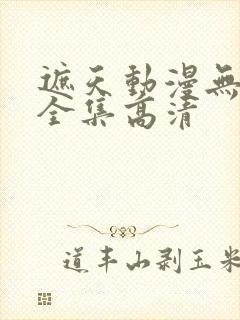 遮天動漫無
全集高清
道丰山剥玉米